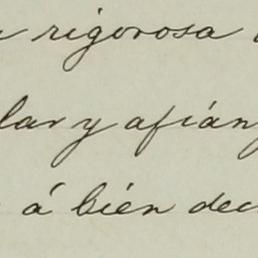 rigorosa
lar y afian
á bién dec